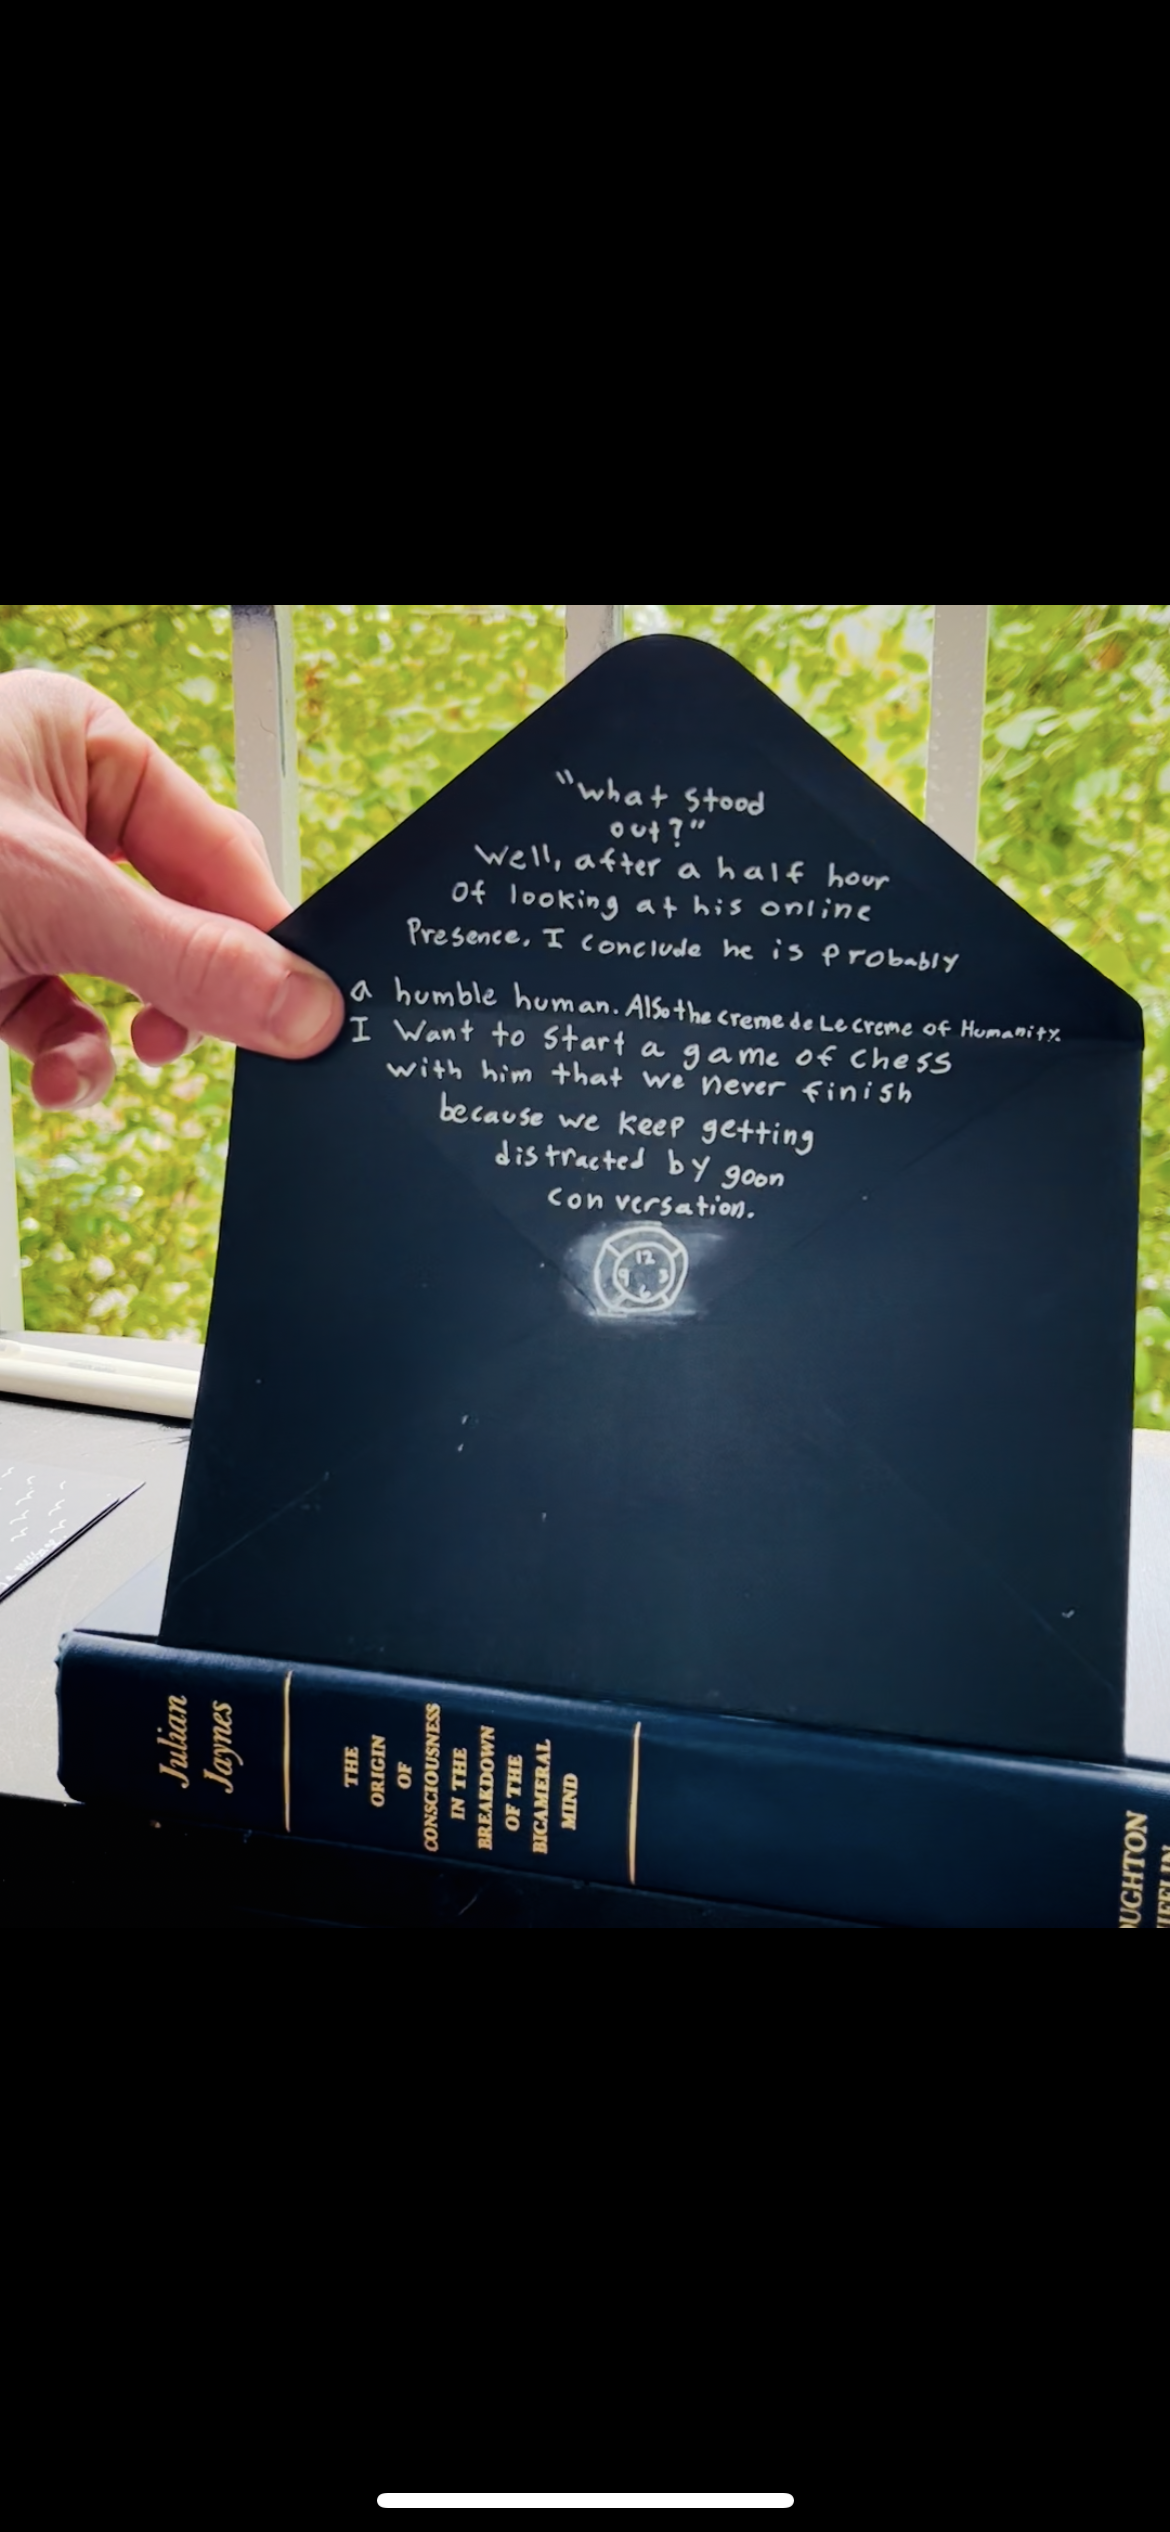 "What stood
out?"
Well, after a half hour
of looking at his online
Presence, I conclude he is probably
a humble human. Also the creme de Le creme of Humanity.
I Want to start a game of chess
with him that we never finish
because we keep getting
distracted by goon
conversation.
12
9 3
6
Julian
Jaynes
THE
ORIGIN
OF
CONSCIOUSNESS
IN THE
BREAKDOWN
OF THE
BICAMERAL
MIND
OUGHTON